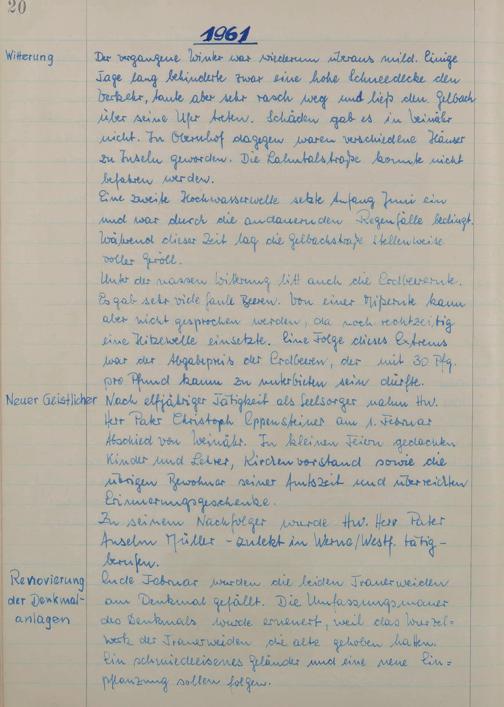 20
1961
Witterung
Der vergangene Winter war wiederum überaus mild. Einige
Tage lang behinderte zwar eine hohe Schneedecke den
Verkehr, taute aber sehr rasch weg und ließ den Gelbach
über seine Ufer treten. Schäden gab es in Weinähr
nicht. In Obernhof dagegen waren verschiedene Häuser
zu Inseln geworden. Die Lahntalstraße konnte nicht
befahren werden.
Eine zweite Hochwasserwelle setzte Anfang Juni ein
und war durch die andauernden Regenfälle bedingt.
Während dieser Zeit lag die Gelbachstraße stellenweise
voller Geröll.
Unter der nassen Witterung litt auch die Erdbeerernte.
Es gab sehr viele faule Beeren. Von einer Mißernte kann
aber nicht gesprochen werden, da noch rechtzeitig
eine Hitzewelle einsetzte. Eine Folge dieses Extrems
war der Abgabepreis der Erdbeeren, der mit 30 Pfg.
pro Pfund kaum zu unterbieten sein dürfte.
Neuer Geistlicher
Nach elfjähriger Tätigkeit als Seelsorger nahm Hw.
Herr Pater Christoph Eppensteiner am 1. Februar
Abschied von Weinähr. In kleinen Feiern gedachten
Kinder und Lehrer, Kirchenvorstand sowie die
übrigen Bewohner seiner Amtszeit und überreichten
Erinnerungsgeschenke.
Zu seinem Nachfolger wurde Hw. Herr Pater
Anselm Müller - zuletzt in Werne/Westf. tätig -
berufen.
Renovierung
der Denkmal-
anlagen
Ende Februar wurden die beiden Trauerweiden
am Denkmal gefällt. Die Umfassungsmauer
des Denkmals wurde erneuert, weil das Wurzel=
werk der Trauerweiden die alte gehoben hatten.
Ein schmiedeeisernes Geländer und eine neue Ein=
pflanzung sollen folgen.